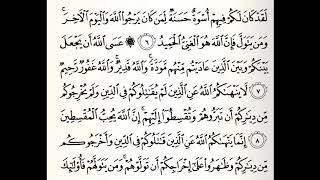 لَقَدْ كَانَ لَكُمْ فِيهِمْ أُسْوَةٌ حَسَنَةٌ لِّمَن كَانَ يَرْجُوا۟ ٱللَّهَ وَٱلْيَوْمَ ٱلْءَاخِرَ ۚ
وَمَن يَتَوَلَّ فَإِنَّ ٱللَّهَ هُوَ ٱلْغَنِىُّ ٱلْحَمِيدُ ٦ ۞ عَسَى ٱللَّهُ أَن يَجْعَلَ
بَيْنَكُمْ وَبَيْنَ ٱلَّذِينَ عَادَيْتُم مِّنْهُم مَّوَدَّةً ۚ وَٱللَّهُ قَدِيرٌ ۚ وَٱللَّهُ غَفُورٌ رَّحِيمٌ
٧ لَّا يَنْهَىٰكُمُ ٱللَّهُ عَنِ ٱلَّذِينَ لَمْ يُقَٰتِلُوكُمْ فِى ٱلدِّينِ وَلَمْ يُخْرِجُوكُم
مِّن دِيَٰرِكُمْ أَن تَبَرُّوهُمْ وَتُقْسِطُوٓا۟ إِلَيْهِمْ ۚ إِنَّ ٱللَّهَ يُحِبُّ ٱلْمُقْسِطِينَ
٨ إِنَّمَا يَنْهَىٰكُمُ ٱللَّهُ عَنِ ٱلَّذِينَ قَٰتَلُوكُمْ فِى ٱلدِّينِ وَأَخْرَجُوكُم
مِّن دِيَٰرِكُمْ وَظَٰهَرُوا۟ عَلَىٰٓ إِخْرَاجِكُمْ أَن تَوَلَّوْهُمْ ۚ وَمَن يَتَوَلَّهُمْ فَأُو۟لَٰٓئِكَ